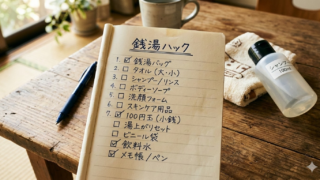 銭湯ハック
1. ☑ 銭湯バッグ
2. ☐ タオル(大・小)
3. ☐ シャンプー/リンス
4. ☐ ボディーソープ
5. ☐ 洗顔フォーム
6. ☐ スキンケア用品
7. ☑ 100円玉(小銭)
☐ 湯上がりセット
☐ ビニール袋
☑ 飲料水
☑ メモ帳/ペン